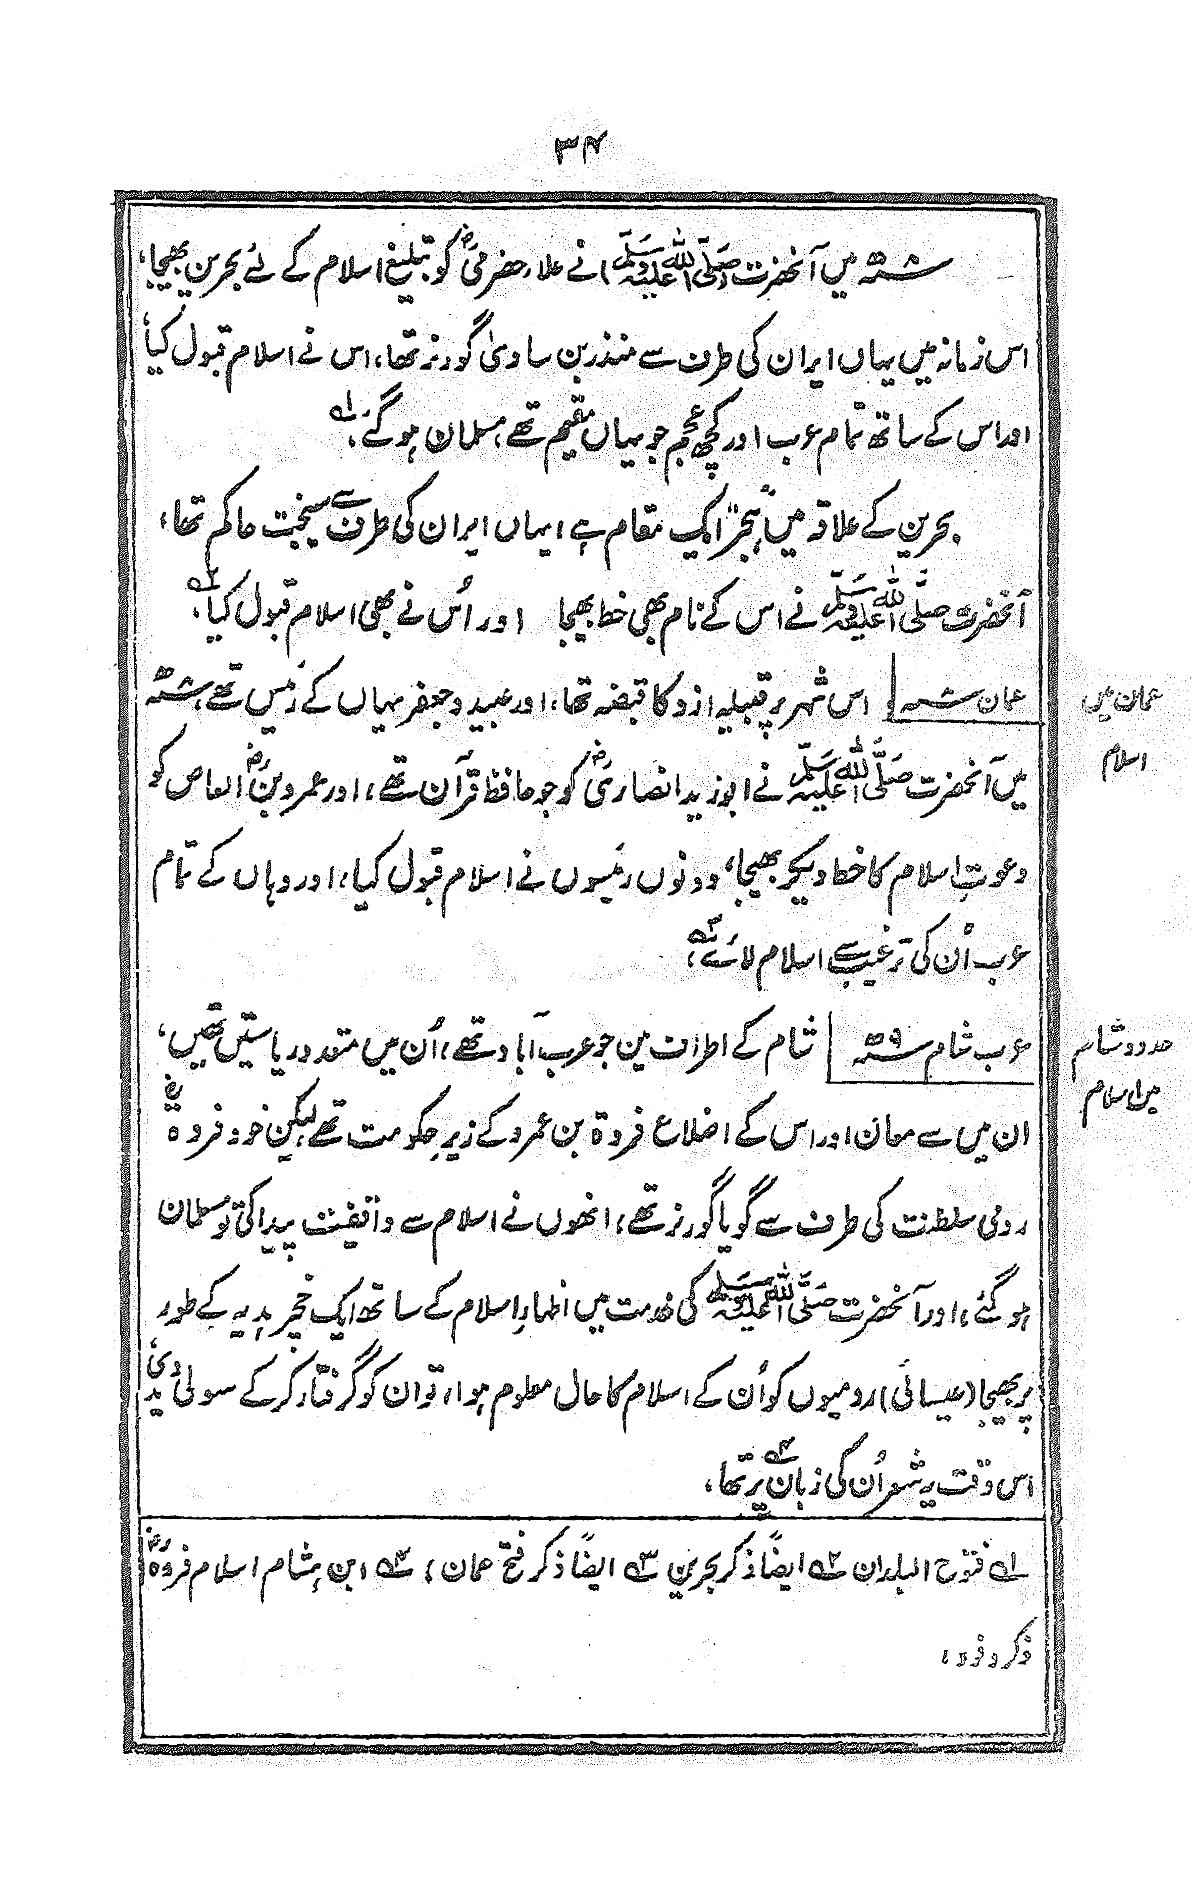 ۳۴
۸ھ میں آنحضرت (صلی اللہ علیہ وسلم) نے علاء حضرمیؓ کو تبلیغ اسلام کے لئے بحرین بھیجا،
اس زمانہ میں یہاں ایران کی طرف سے منذر بن ساویٰ گورنر تھا، اس نے اسلام قبول کیا،
اور اس کے ساتھ تمام عرب اور کچھ عجم جو یہاں مقیم تھے، مسلمان ہو گئے، ؎۱
بحرین کے علاقہ میں "ہجر" ایک مقام ہے، یہاں ایران کی طرف سے سیخت حاکم تھا،
آنحضرت صلی اللہ علیہ وسلم نے اس کے نام بھی خط بھیجا اور اُس نے بھی اسلام قبول کیا، ؎۲
عمان میں اسلام
عمان ۸ھ اس شہر پر قبیلہ ازد کا قبضہ تھا، اور عبید و جعفر یہاں کے رئیس تھے، ۸ھ
میں آنحضرت صلی اللہ علیہ وسلم نے ابو زید انصاریؓ کو جو حافظ قرآن تھے، اور عمرو بن العاصؓ کو
دعوتِ اسلام کا خط دیکر بھیجا، دونوں رئیسوں نے اسلام قبول کیا، اور وہاں کے تمام
عرب اُن کی ترغیب سے اسلام لائے، ؎۳
حدود شام میں اسلام
عرب شام ۹ھ شام کے اطراف میں جو عرب آباد تھے، اُن میں متعدد ریاستیں تھیں،
ان میں سے معان اور اس کے اضلاع فروۃ بن عمرو کے زیر حکومت تھے، لیکن خود فروۃؓ
رومی سلطنت کی طرف سے گویا گورنر تھے، انھوں نے اسلام سے واقفیت پیدا کی تو مسلمان
ہو گئے، اور آنحضرت صلی اللہ علیہ وسلم کی خدمت میں اظہارِ اسلام کے ساتھ ایک خچر ہدیہ کے طور
پر بھیجا (عیسائی) رومیوں کو اُن کے اسلام کا حال معلوم ہوا، تو ان کو گرفتار کر کے سولی دیدی،
اس وقت یہ شعر اُن کی زبان پر تھا، ؎۴
؎۱ فتوح البلدان ؎۲ ایضاً ذکر بحرین ؎۳ ایضاً ذکر فتح عمان، ؎۴ ابن ہشام اسلام فروۃؓ
ذکر وفود،